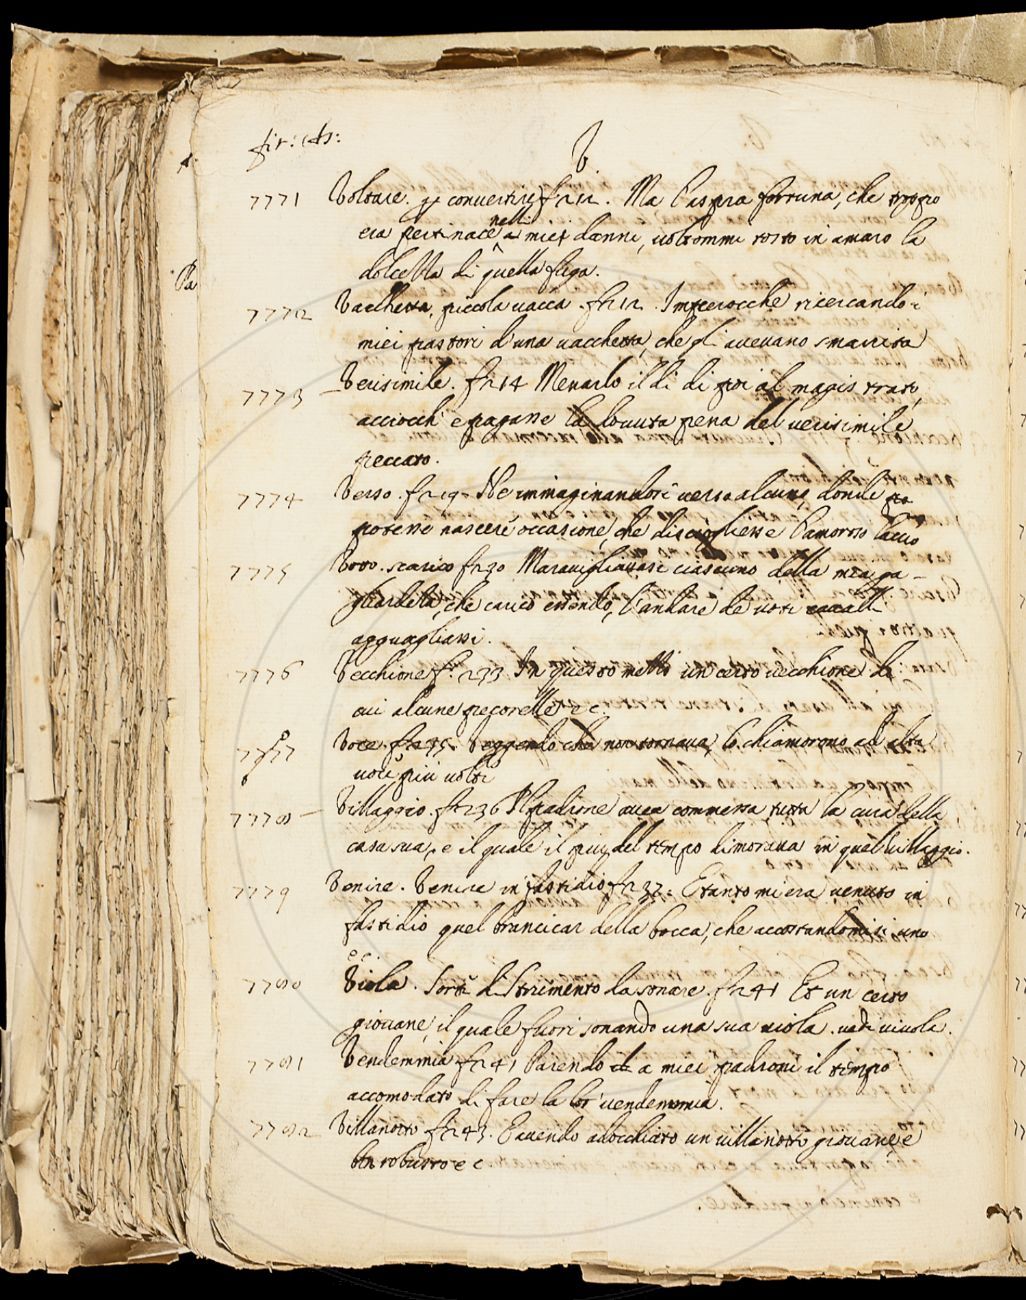 fir: as:
V.
7771 Voltare. p convertire fr 212. Ma l'aspra fortuna, che troppo
era pertinace nelli miei danni, voltommi tosto in amaro la
dolcezza di quella fuga.
7772 Vacchetta, piccola vacca. fr 212. Imperocche ricercando i
miei pastori d'una vacchetta, che gli avevano smarrita
7773 Verisimile. fr 214 Menarlo il dì di poi al magistrato,
acciocch' e' pagasse la dovuta pena del verisimile
peccato.
7774 Verso. fr 219. Ne immaginandosi verso alcuno donde
potesse nascere occasione, che disciogliesse l'amoroso laccio
7775 Voto. scarico fr 230 Maravigliavasi ciascuno della mia ga-
gliardeza, che carico essendo, l'andare de voti cavalli
agguagliassi.
7776 Vecchione fr. 233 In questo mentre un certo vecchione da
cui alcune pecorelle e c.
7777 Voce. fr 235. Veggendo che non tornava, lo chiamorono ad alta
voce più volte
7778 Villaggio. fr 236 Il padrone avea commessa tutta la cura della
casa sua, e il quale il più del tempo dimorava in quel villaggio.
7779 Venire. Venire in fastidio fr 237. E tanto mi era venuto in
fastidio quel brancicar della bocca, che accostandomisi uno
e c.
7780 Viola. Sorte di Strumento da sonare. fr 241 Et un certo
giovane, il quale fuori sonando una sua viola. vedi vivola.
7781 Vendemmia fr 241 Parendo a miei padroni il tempo
accomodato di fare la lor vendemmia.
7782 Villanotto fr 243. E avendo adocchiato un villanotto giovane, e
ben robusto e c